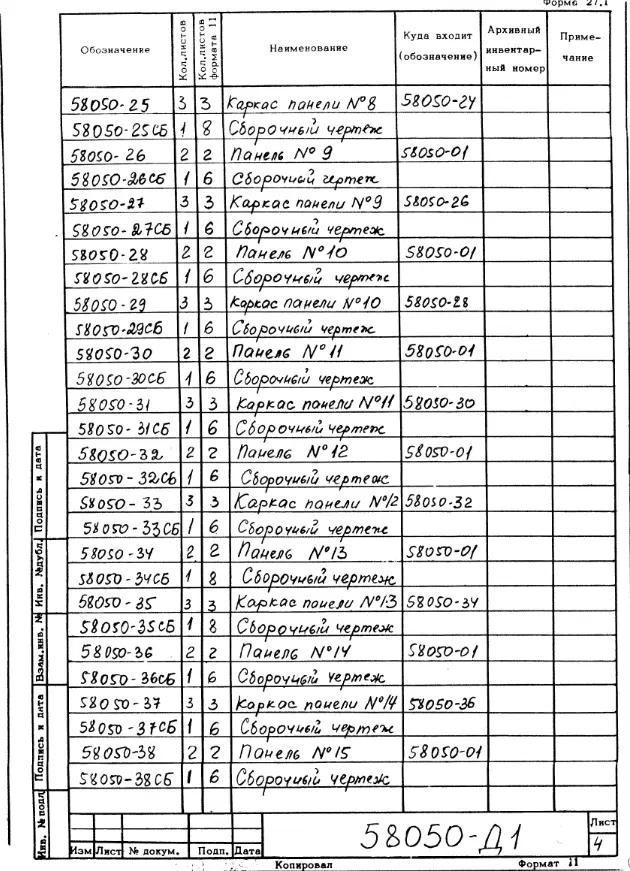 Форма 27.1
Обозначение Кол.листов Кол.листов формата 11 Наименование Куда входит (обозначение) Архивный инвентарный номер Примечание
58050-25 3 3 Каркас панели №8 58050-24
58050-25СБ 1 8 Сборочный чертеж
58050-26 2 2 Панель №9 58050-01
58050-26СБ 1 6 Сборочный чертеж
58050-27 3 3 Каркас панели №9 58050-26
58050-27СБ 1 6 Сборочный чертеж
58050-28 2 2 Панель №10 58050-01
58050-28СБ 1 6 Сборочный чертеж
58050-29 3 3 Каркас панели №10 58050-28
58050-29СБ 1 6 Сборочный чертеж
58050-30 2 2 Панель №11 58050-01
58050-30СБ 1 6 Сборочный чертеж
58050-31 3 3 Каркас панели №11 58050-30
58050-31СБ 1 6 Сборочный чертеж
58050-32 2 2 Панель №12 58050-01
58050-32СБ 1 6 Сборочный чертеж
58050-33 3 3 Каркас панели №12 58050-32
58050-33СБ 1 6 Сборочный чертеж
58050-34 2 2 Панель №13 58050-01
58050-34СБ 1 8 Сборочный чертеж
58050-35 3 3 Каркас панели №13 58050-34
58050-35СБ 1 8 Сборочный чертеж
58050-36 2 2 Панель №14 58050-01
58050-36СБ 1 6 Сборочный чертеж
58050-37 3 3 Каркас панели №14 58050-36
58050-37СБ 1 6 Сборочный чертеж
58050-38 2 2 Панель №15 58050-01
58050-38СБ 1 6 Сборочный чертеж
Инв. № подл. Подпись и дата Взам.инв. № Инв. №дубл. Подпись и дата
Изм Лист № докум. Подп. Дата
58050-Д1
Лист
4
Копировал Формат 11